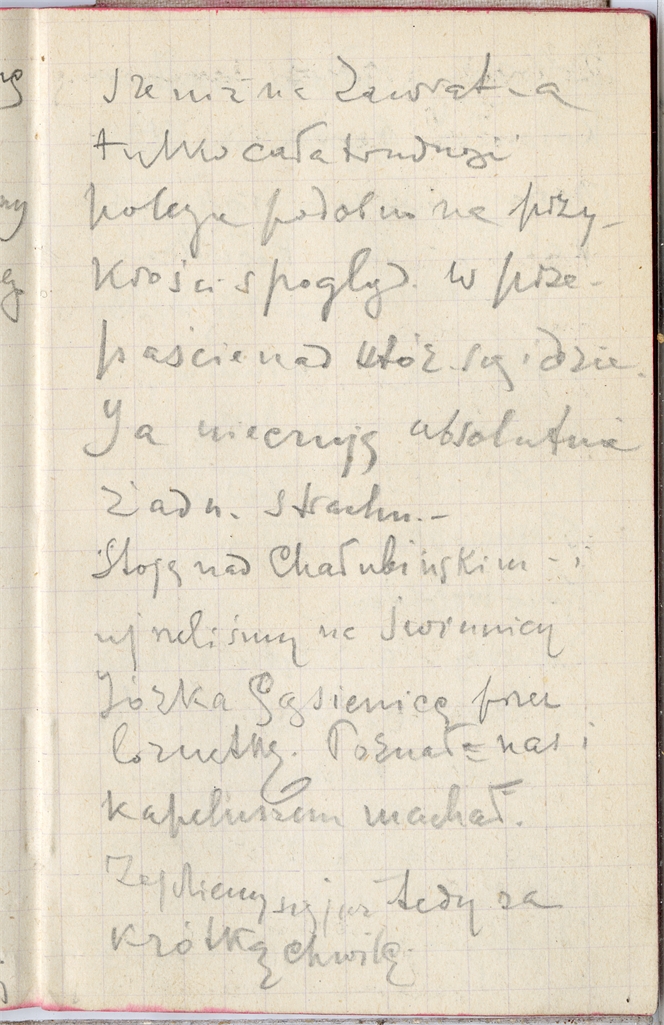 sze niż na Zawrat - a
tylko cała trudność
polega podobno na przy-
krości spogląd. w prze-
paście nad któr. się idzie.
Ja nieczuję absolutnie
żadn. strachu. -
Stoję nad Chałubińskim - i
ujrzeliśmy na Świnnicy
Józka Gąsienicę przez
lornetkę. Poznał nas i
kapeluszem machał.
Zejdziemy się już tedy za
krótką chwilę.